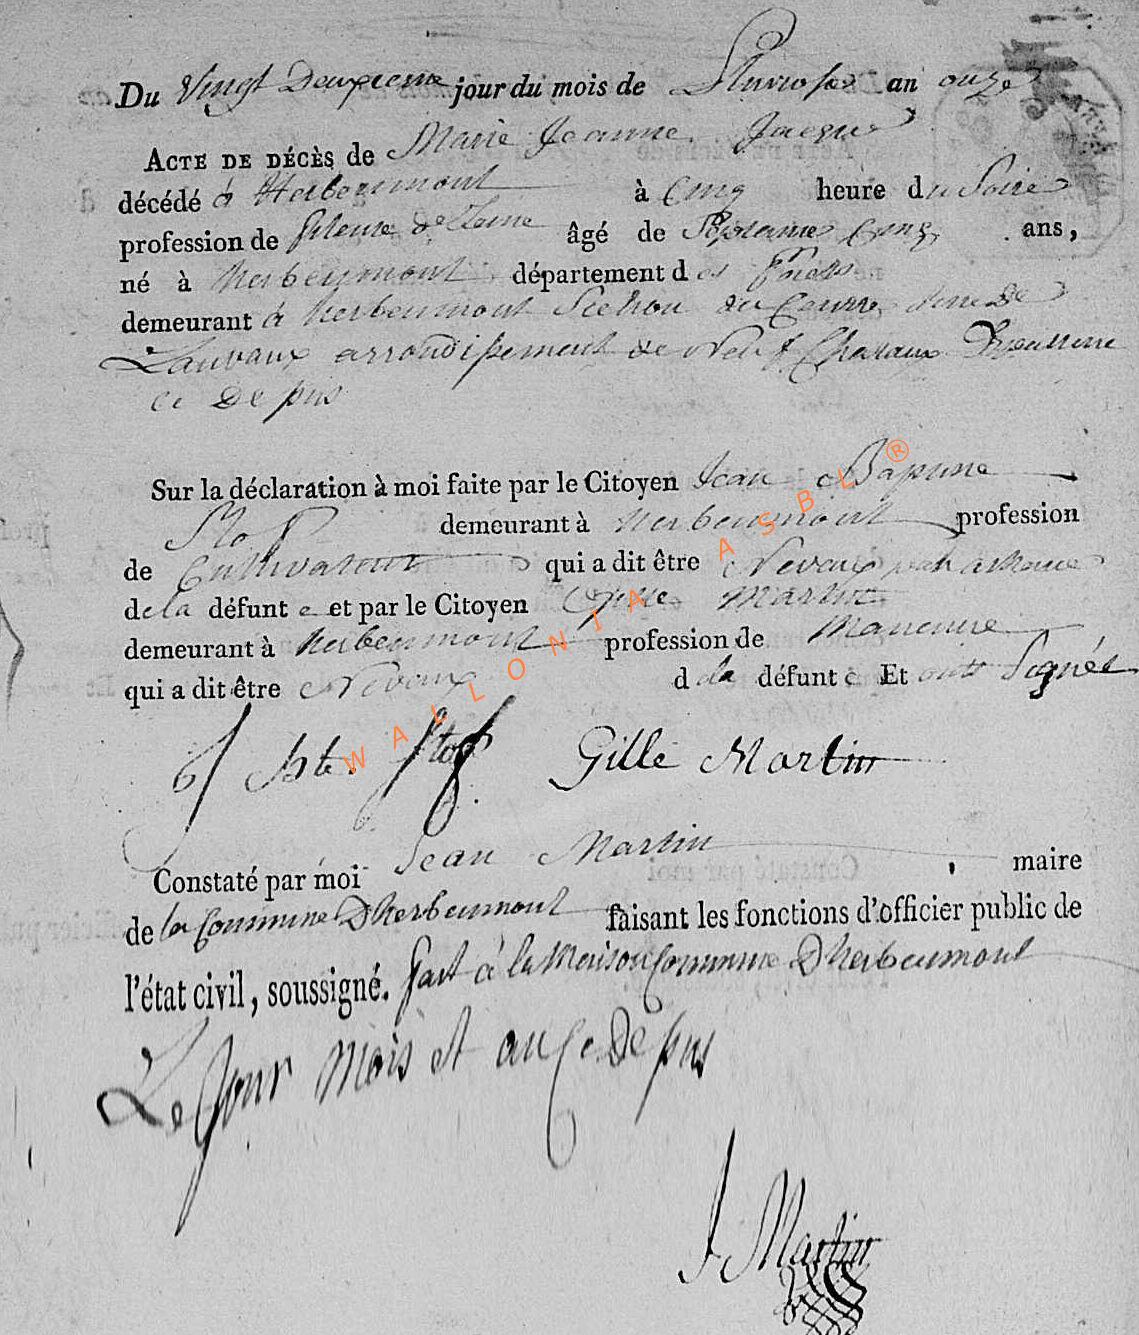 Du Vingt Deuxieme jour du mois de Pluviose an onze
ACTE DE DÉCÈS de Marie Jeanne Jacque
décédé à Herbeumont à Cinq heure du Soire
profession de fileuse de laine âgé de Septante Cinq ans,
né à herbeumont département des forets
demeurant à herbeumont
arrondissement de Neuf Chataux
ce De pus
Sur la déclaration à moi faite par le Citoyen Jean Baptiste
Stof demeurant à herbeumont profession
de Cultivateur qui a dit être Neveux
dela défunt e et par le Citoyen Gille Martin
demeurant à herbeumont profession de
qui a dit être Neveux d la défunt e Et onts Signés
J Bte. Stof Gille Martin
Constaté par moi Jean Martin maire
de la Commune Dherbeumont faisant les fonctions d'officier public de
l'état civil, soussigné. fait à la Maison Commune Dherbeumont
Le Jour Mois et an Ce De pus
J Martin
WALLONIA ASBL ®